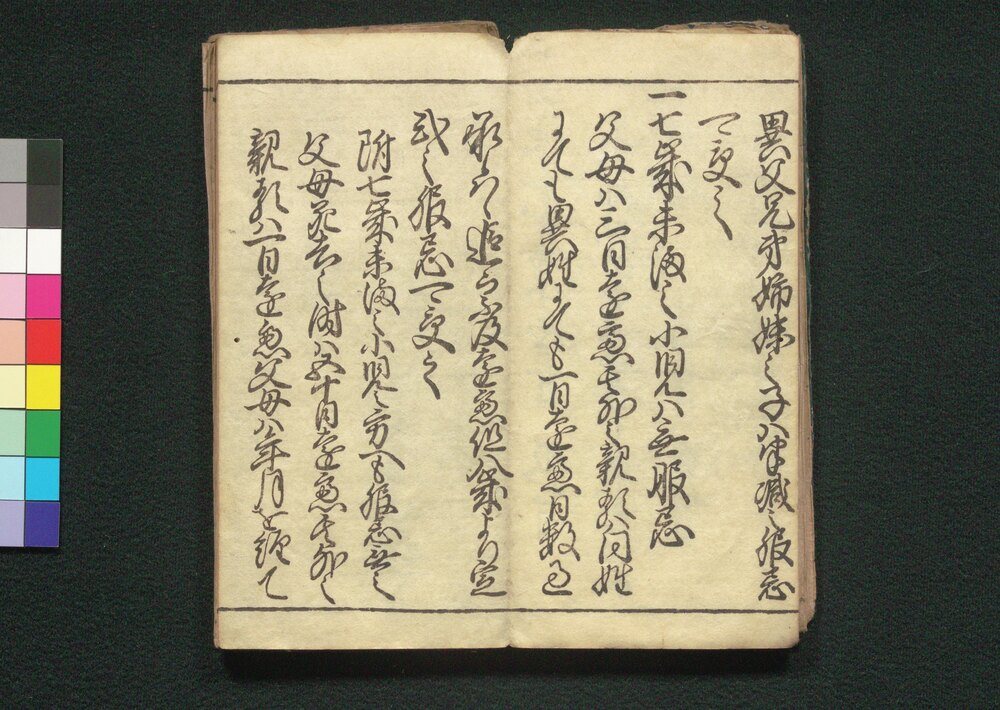 異父兄弟姉妹之子ハ半減之服忌
可受之
一七歳未満之小児ハ無服忌
父母ハ三日遠慮其外之親類ハ同姓
にても異姓にても一日遠慮日数過
承候ハヽ追而不及遠慮但八歳より定
式之服忌可受之
附七歳未満之小児之方へも服忌無之
父母死去之時ハ五十日遠慮其外之
親類ハ一日遠慮父母ハ年月を経て